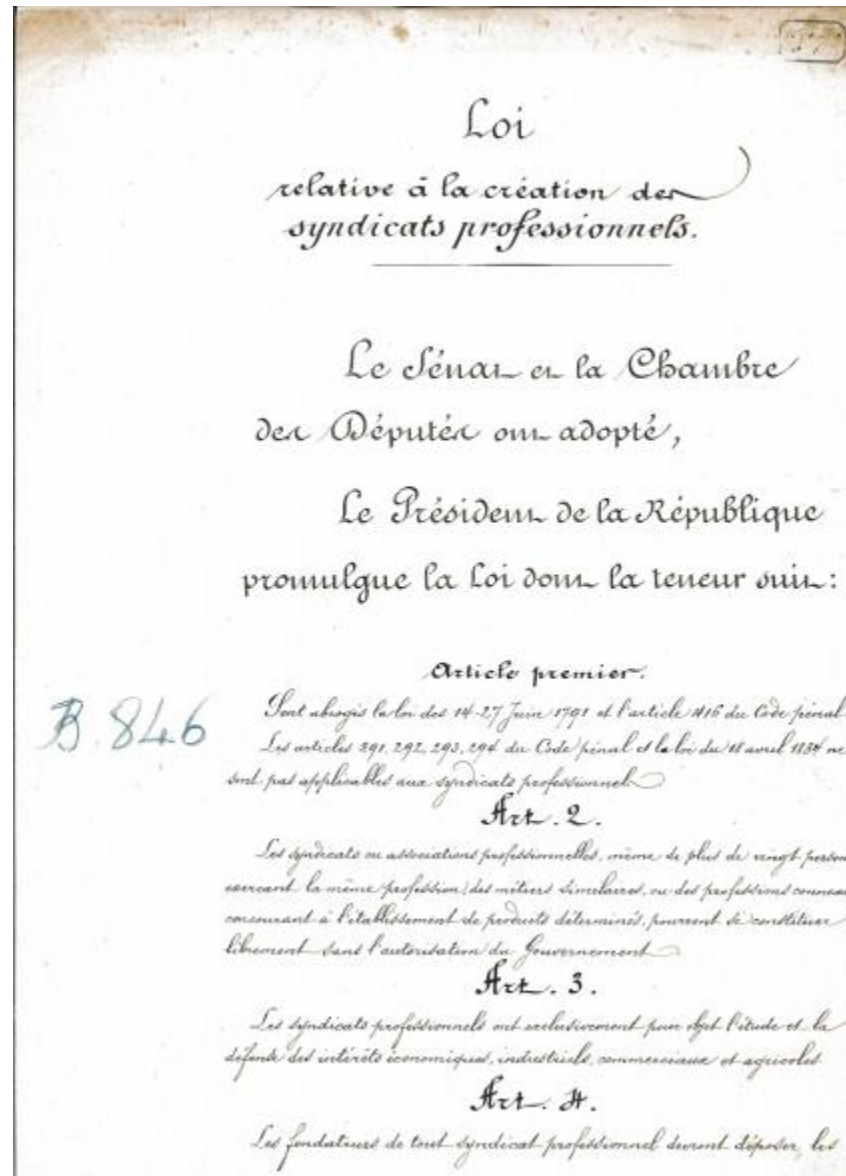 Loi
relative à la création des
syndicats professionnels.
Le Sénat et la Chambre
des Députés ont adopté,
Le Président de la République
promulgue la Loi dont la teneur suit :
Article premier.
B. 846
Sont abrogés la loi des 14-27 Juin 1791 et l'article 416 du Code pénal
Les articles 291, 292, 293, 294 du Code pénal et la loi du 18 avril 1834 ne
sont pas applicables aux syndicats professionnels
Art. 2.
Les syndicats ou associations professionnelles, même de plus de vingt person
exerçant la même profession, des métiers similaires, ou des professions connexes
concourant à l'établissement de produits déterminés, pourront se constituer
librement sans l'autorisation du Gouvernement
Art. 3.
Les syndicats professionnels ont exclusivement pour objet l'étude et la
défense des intérêts économiques, industriels, commerciaux et agricoles
Art. 4.
Les fondateurs de tout syndicat professionnel devront déposer les